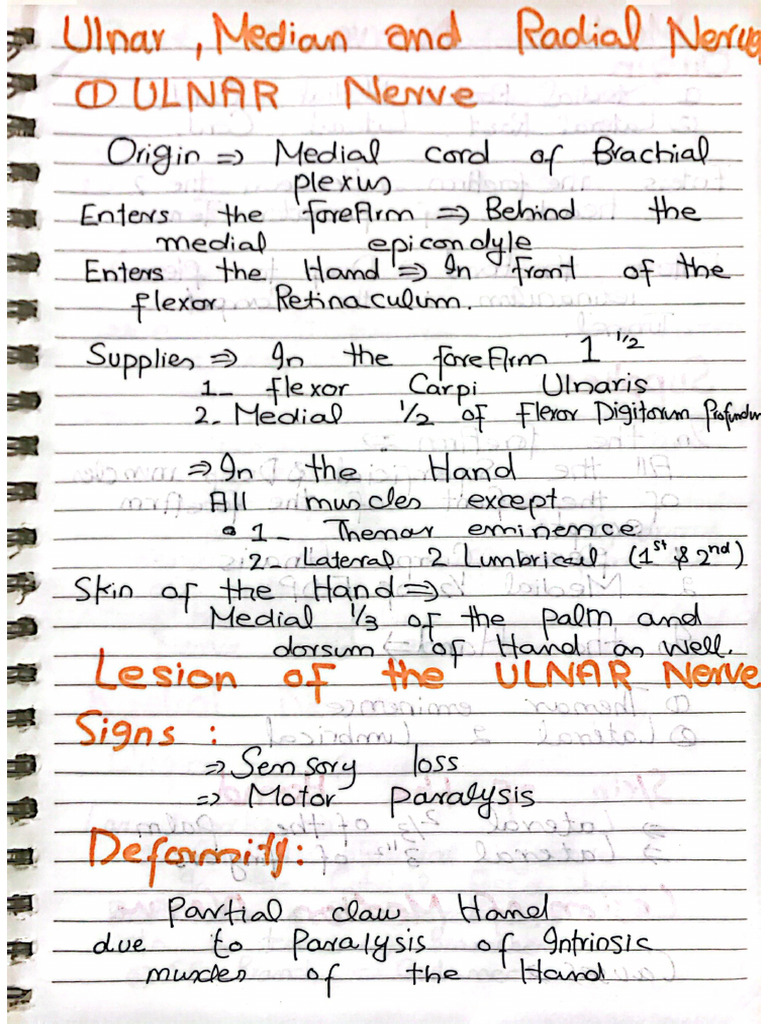 Ulnar, Median and Radial Nerve
① ULNAR Nerve
Origin ⇒ Medial cord of Brachial
plexus
Enters the foreArm ⇒ Behind the
medial epicondyle
Enters the Hand ⇒ In front of the
flexor Retinaculum.
Supplies ⇒ In the foreArm 1 1/2
1- flexor Carpi Ulnaris
2. Medial 1/2 of Flexor Digitorum Profundus
⇒ In the Hand
All muscles except
• 1- Thenar eminence
2- Lateral 2 Lumbrical (1st & 2nd)
Skin of the Hand ⇒
Medial 1/3 of the palm and
dorsum of Hand as well.
Lesion of the ULNAR Nerve
Signs :
⇒ Sensory loss
⇒ Motor Paralysis
Deformity:
Partial claw Hand
due to Paralysis of Intrinsic
muscles of the Hand